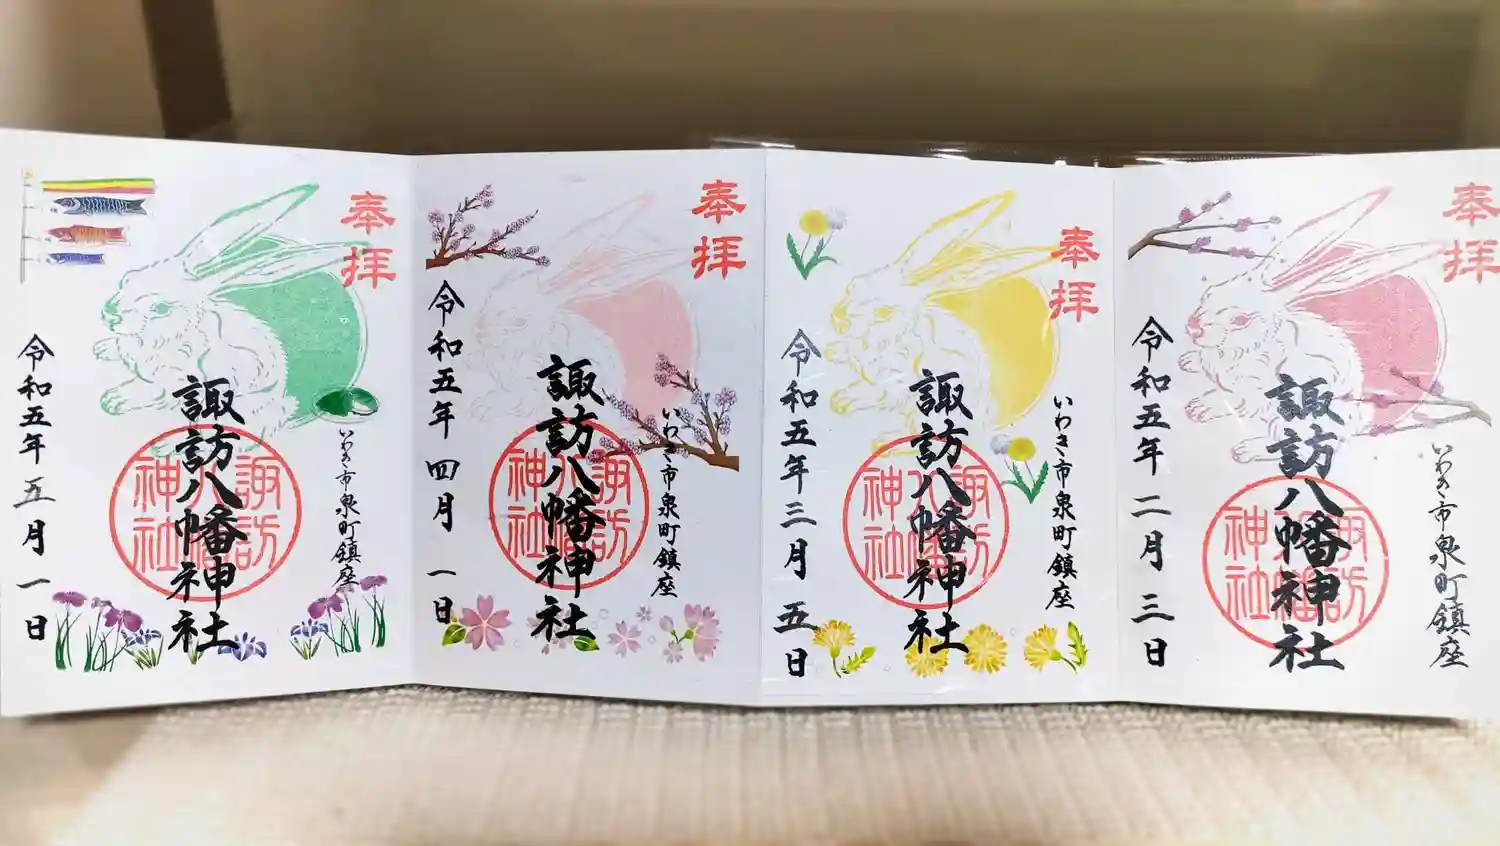 奉拝
いわき市泉町鎮座
諏訪八幡神社
諏訪八幡神社
令和五年二月三日
奉拝
いわき市泉町鎮座
諏訪八幡神社
諏訪八幡神社
令和五年三月五日
奉拝
いわき市泉町鎮座
諏訪八幡神社
諏訪八幡神社
令和五年四月一日
奉拝
いわき市泉町鎮座
諏訪八幡神社
諏訪八幡神社
令和五年五月一日